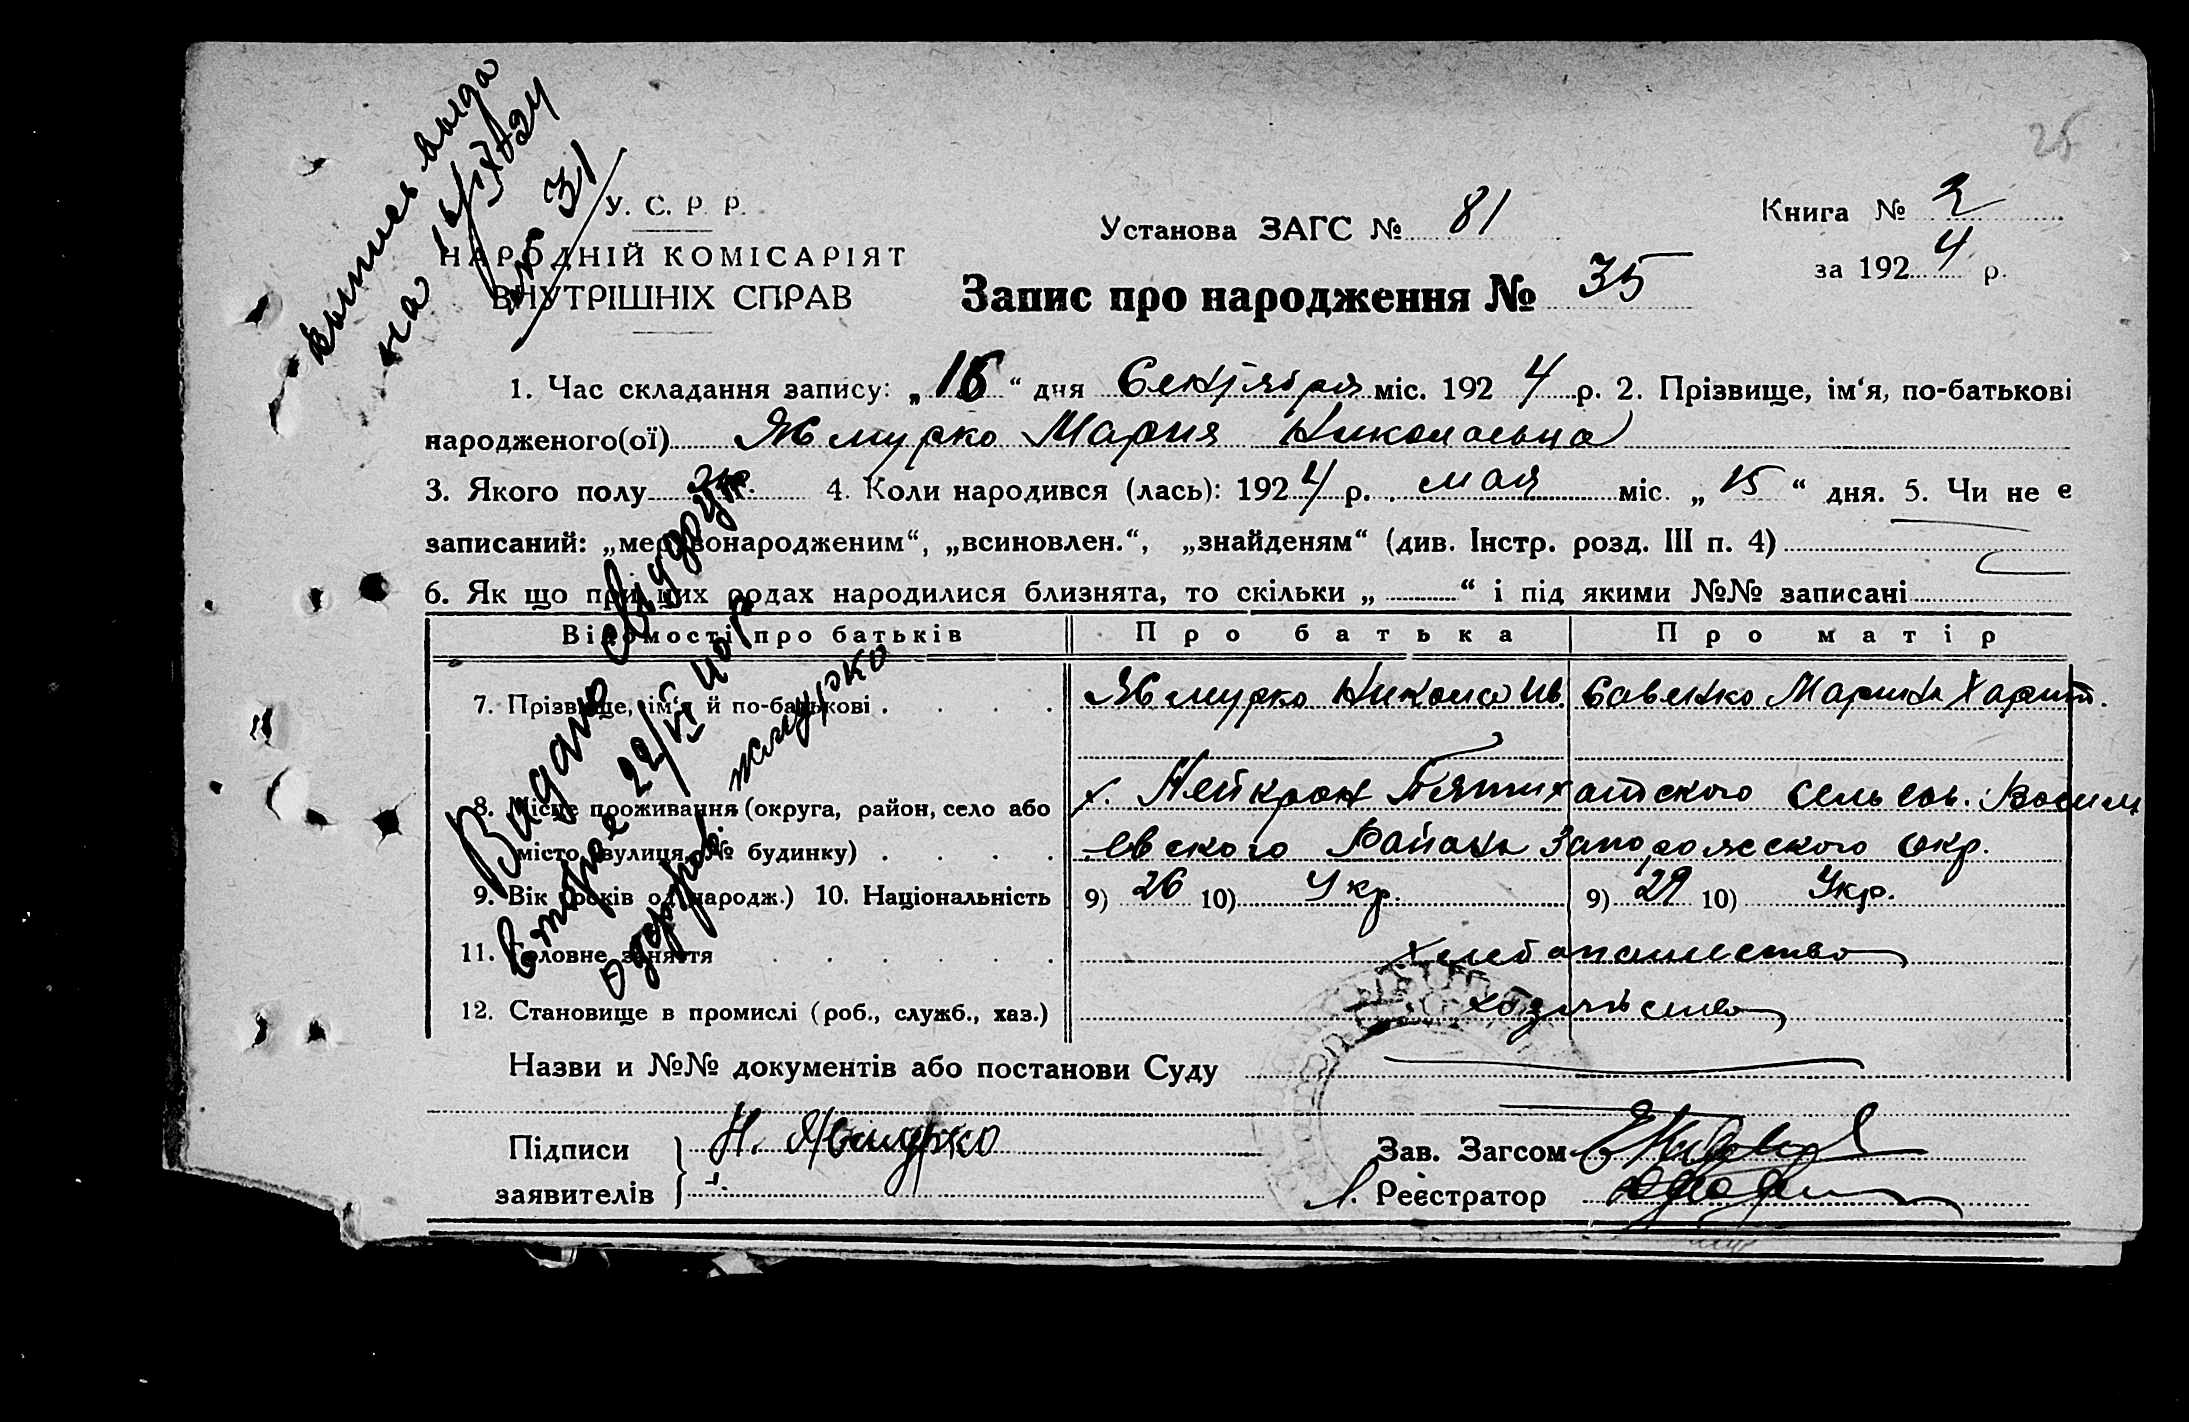 25
выпись выда
на 16/IX 1924
№ 31
У. С. Р. Р.
НАРОДНІЙ КОМІСАРІЯТ
ВНУТРІШНІХ СПРАВ
Установа ЗАГС № 81
Книга № 2
за 1924 р.
Запис про народження № 35
1. Час складання запису: „16“ дня Сентября міс. 1924 р. 2. Прізвище, ім‘я, по-батькові
народженого(ої) Жмурко Мария Николаевна
3. Якого полу ж. 4. Коли народився (лась): 1924 р. мая міс. „15“ дня. 5. Чи не є
записаний: „мертвонародженим“, „всиновлен.“, „знайденям“ (див. Інстр. розд. III п. 4)
6. Як що при цих родах народилися близнята, то скільки „ “ і під якими №№ записані
Відомості про батьків Про батька Про матір
7. Прізвище, ім‘я й по-батькові . . . . Жмурко Никола Ив. Савенко Марина Харит.
8. Місце проживання (округа, район, село або х. Нейкрон Пятихатского сельсов. Васили
місто, вулиця, № будинку) . . . . евского Района Запорожского окр.
9. Вік (років од народж.) 10. Національність 9) 26 10) Укр. 9) 29 10) Укр.
11. Головне заняття . . . . . . хлебопашество
12. Становище в промислі (роб., служб., хаз.) хозяйство
Видано
Вторе 22/VI
одержав. Жмурко
Назви и №№ документів або постанови Суду
Підписи Н. Жмурко Зав. Загсом
заявителів Реєстратор